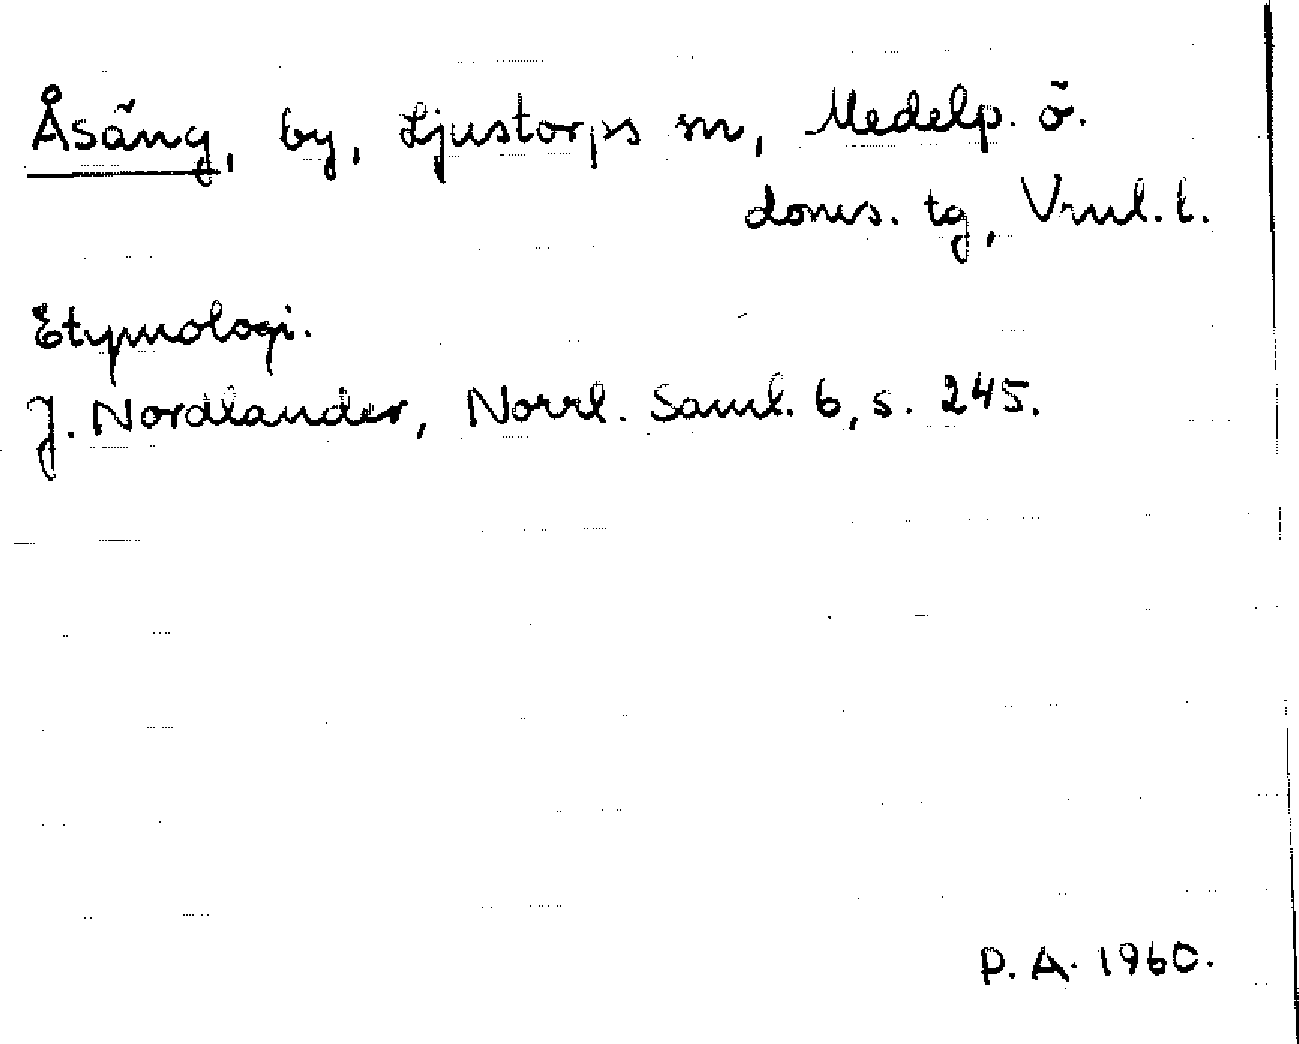 Åsäng, by, Ljustorps sn, Medelp. ö.
doms. tg, Vrnl. l.
Etymologi.
J. Nordlander, Norrl. Saml. 6, s. 245.
P. A. 1960.